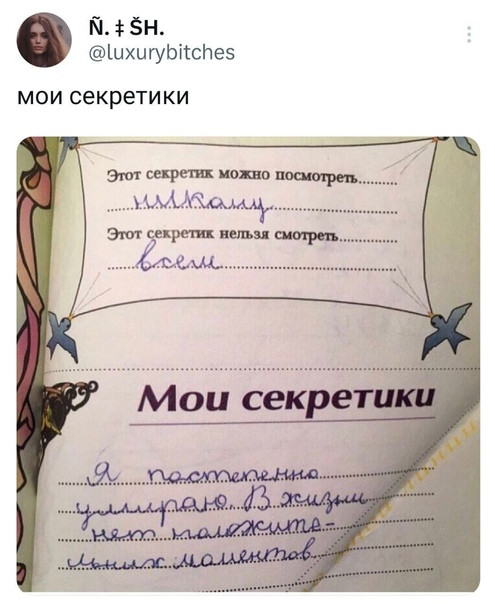 Ñ. ‡ ŠH.
@luxurybitches
мои секретики
Этот секретик можно посмотреть...........
никому
Этот секретик нельзя смотреть................
всем
Мои секретики
Я постепенно
умираю. В жизни
нет положите-
льних моментов.